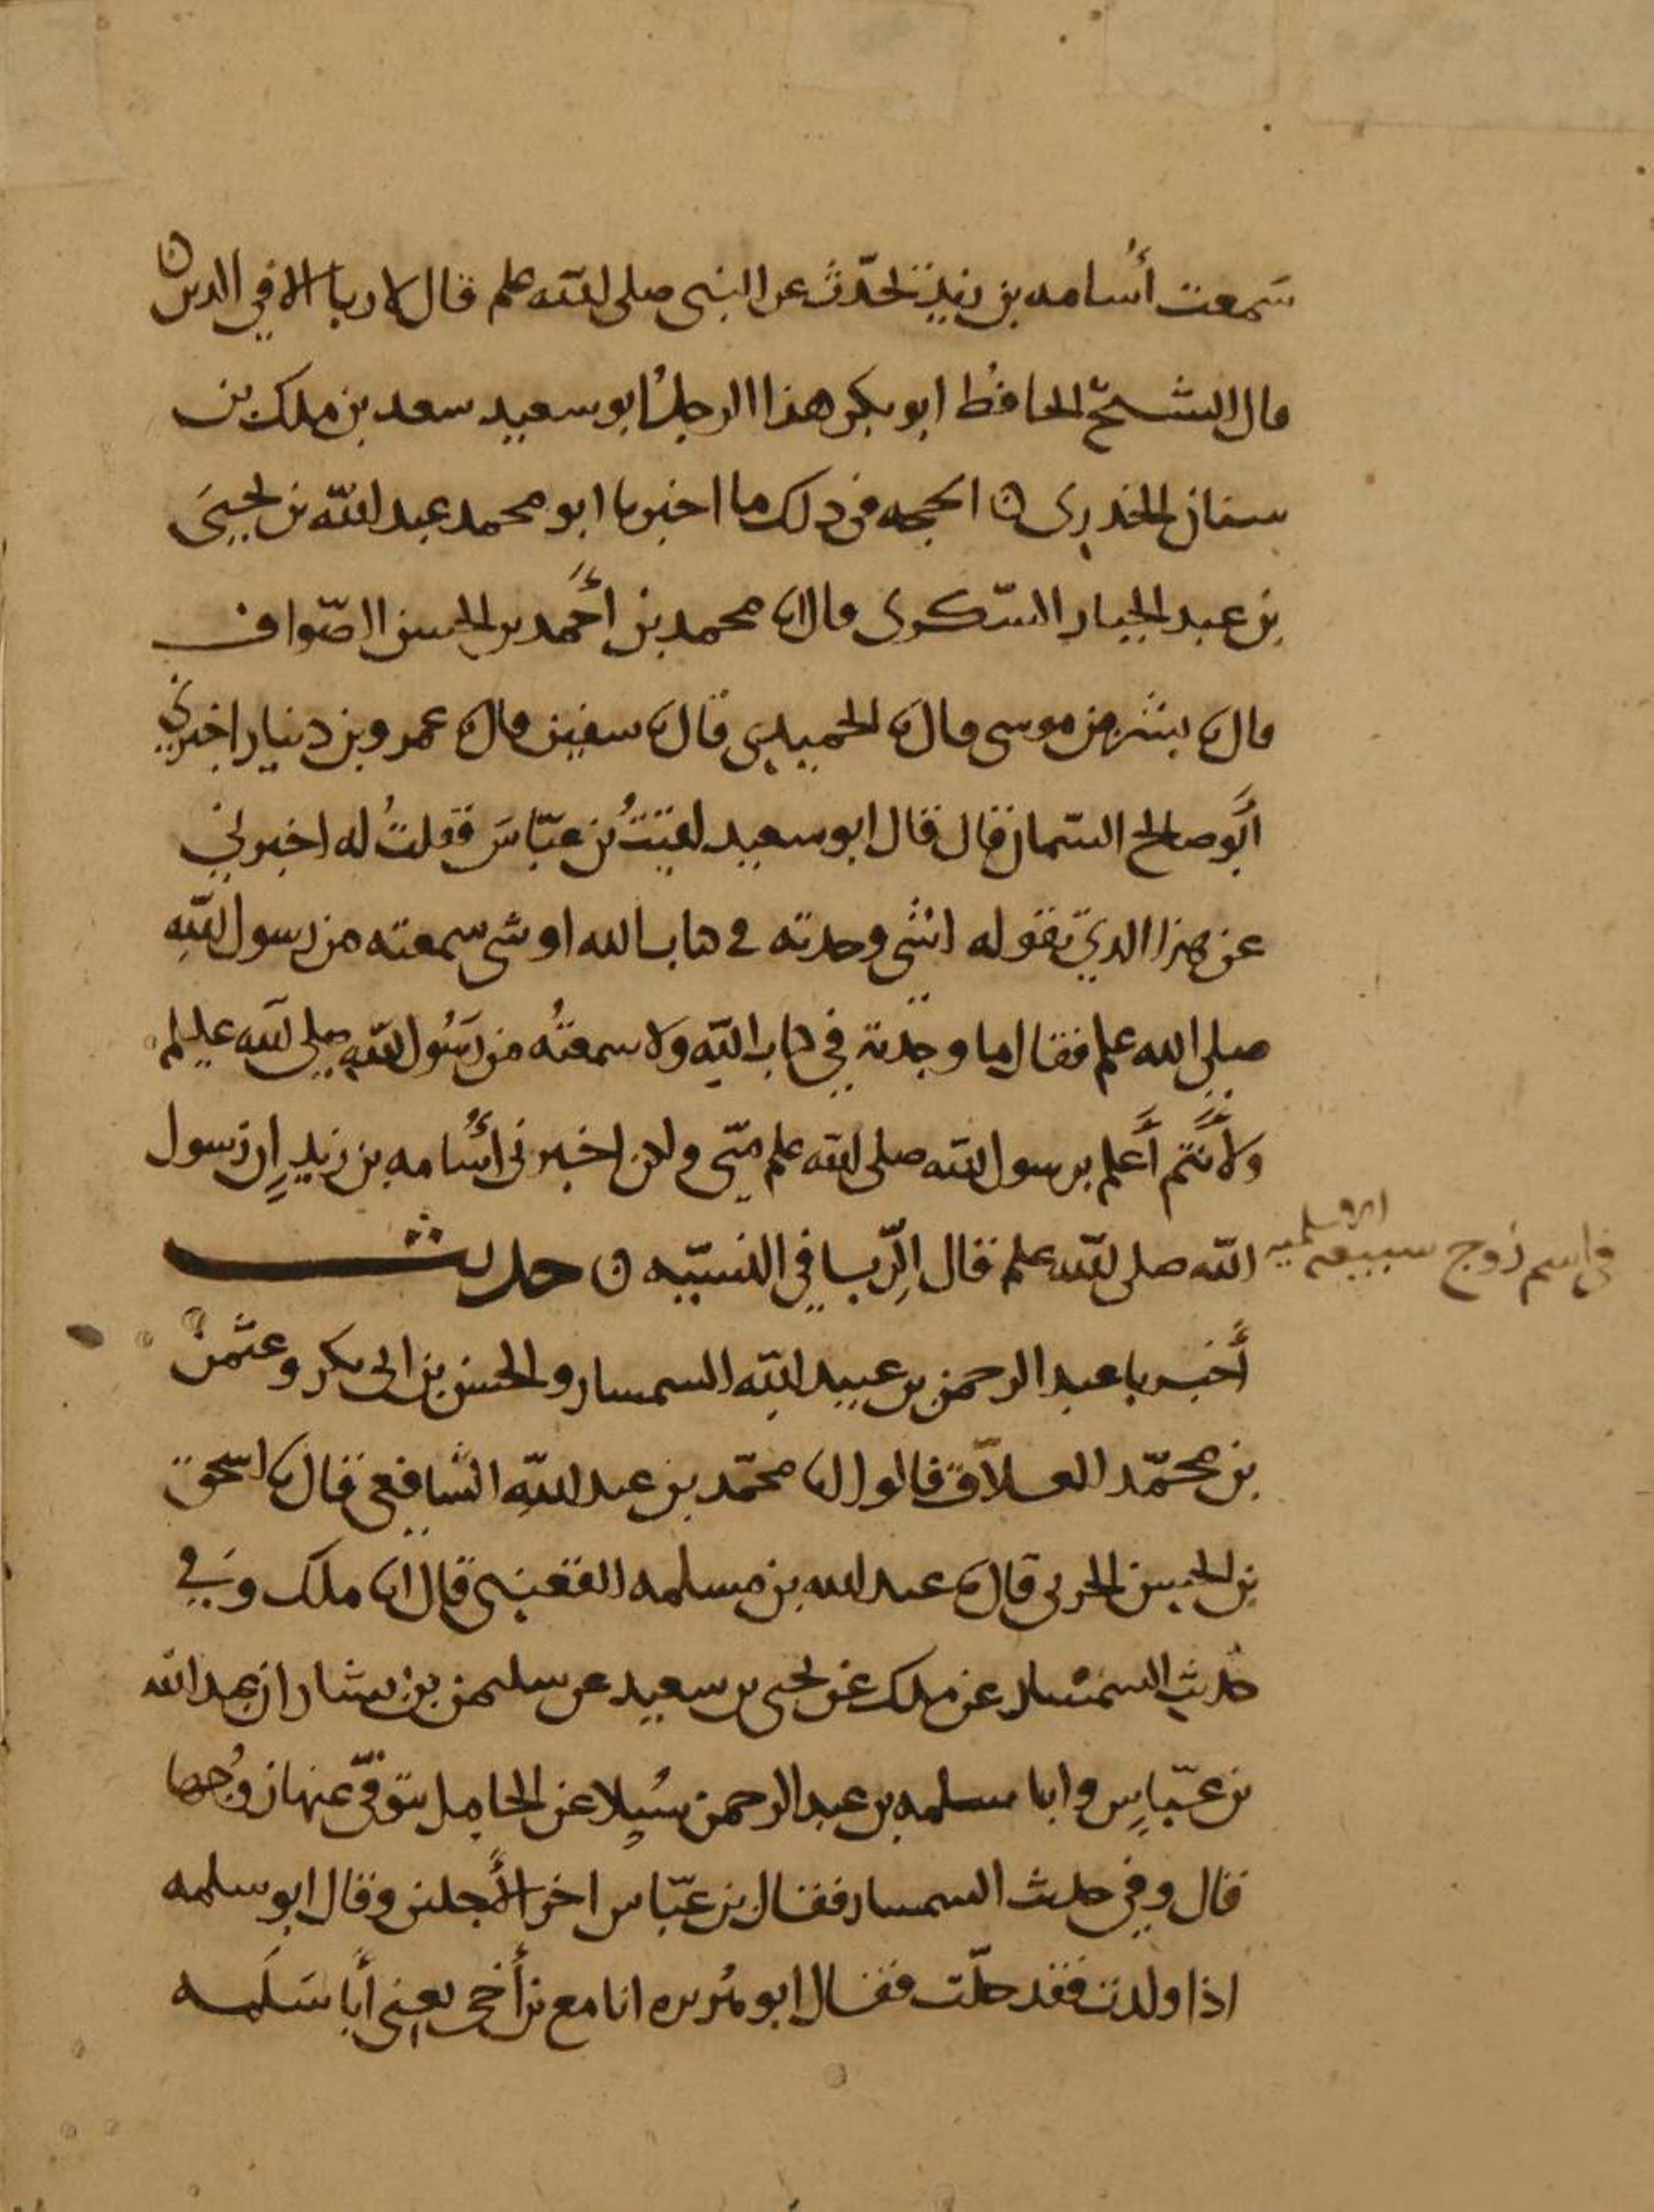 سَمعت أُسامه بن زيد يحَدّث عن النبي صلى الله علم قال لا ربا الا في الدين ه
قال الشيخ الحافظ ابو بكر هذا الرجل ابو سعيد سعد بن ملك بن
سنان الخدري ه الحجه في ذلك ما اخبرنا ابو محمد عبد الله بن يحيىَ
بن عبد الجبار السّكري قال انا محمد بن أَحمد بن الحسن الصّواف
قال نا بشر بن موسى قال نا الحميدي قال نا سفين قال نا عمرو بن دينار اخبرني
أَبو صالح السّمان قال قال ابو سعيد لقيتُ بن عبّاسَ فقلتُ له اخبرني
عن هذا الذي تقوله اشئ وجدته في كتاب الله او شي سمعته من رسول اللهِ
صلى الله علم فقال ما وجدته في كتاب الله ولا سمعتُه من رَسُول الله صلى الله عليلم
ولأَنتم أَعلم برسول الله صلى الله علم منّي ولكن اخبرني أُسامه بن زيدٍ إن رسول
الله صلى الله علم قال الرِّبا في النسيّه ه حديث
في اسم زوج سبيعه الاسلميه
أَخبرنا عبد الرحمن بن عبيد الله السمسار والحسن بن ابي بكر وعثمن
بن محمّد العلاّف قالوا انا محمّد بن عبد اللهِ الشافعي قال نا اسحق
بن الحسن الحربي قال نا عبد الله بن مسلمه القعنبي قال انا ملك وَفي
حديث السمسار عن ملك عن يحيى بن سعيد عن سليمن بن يسار ان عبد الله
بن عبّاسٍ وابا سلمه بن عبد الرحمن سُيِلا عن الحامل يتوفّى عنها زوُجها
قال وفي حديث السمسار فقال بن عبّاس اخر الأَجلين وقال ابو سلمه
اذا ولدت فقد حلّت فقال ابو هُريره انا مع بن أَخي يعني أَبا سَلَمه